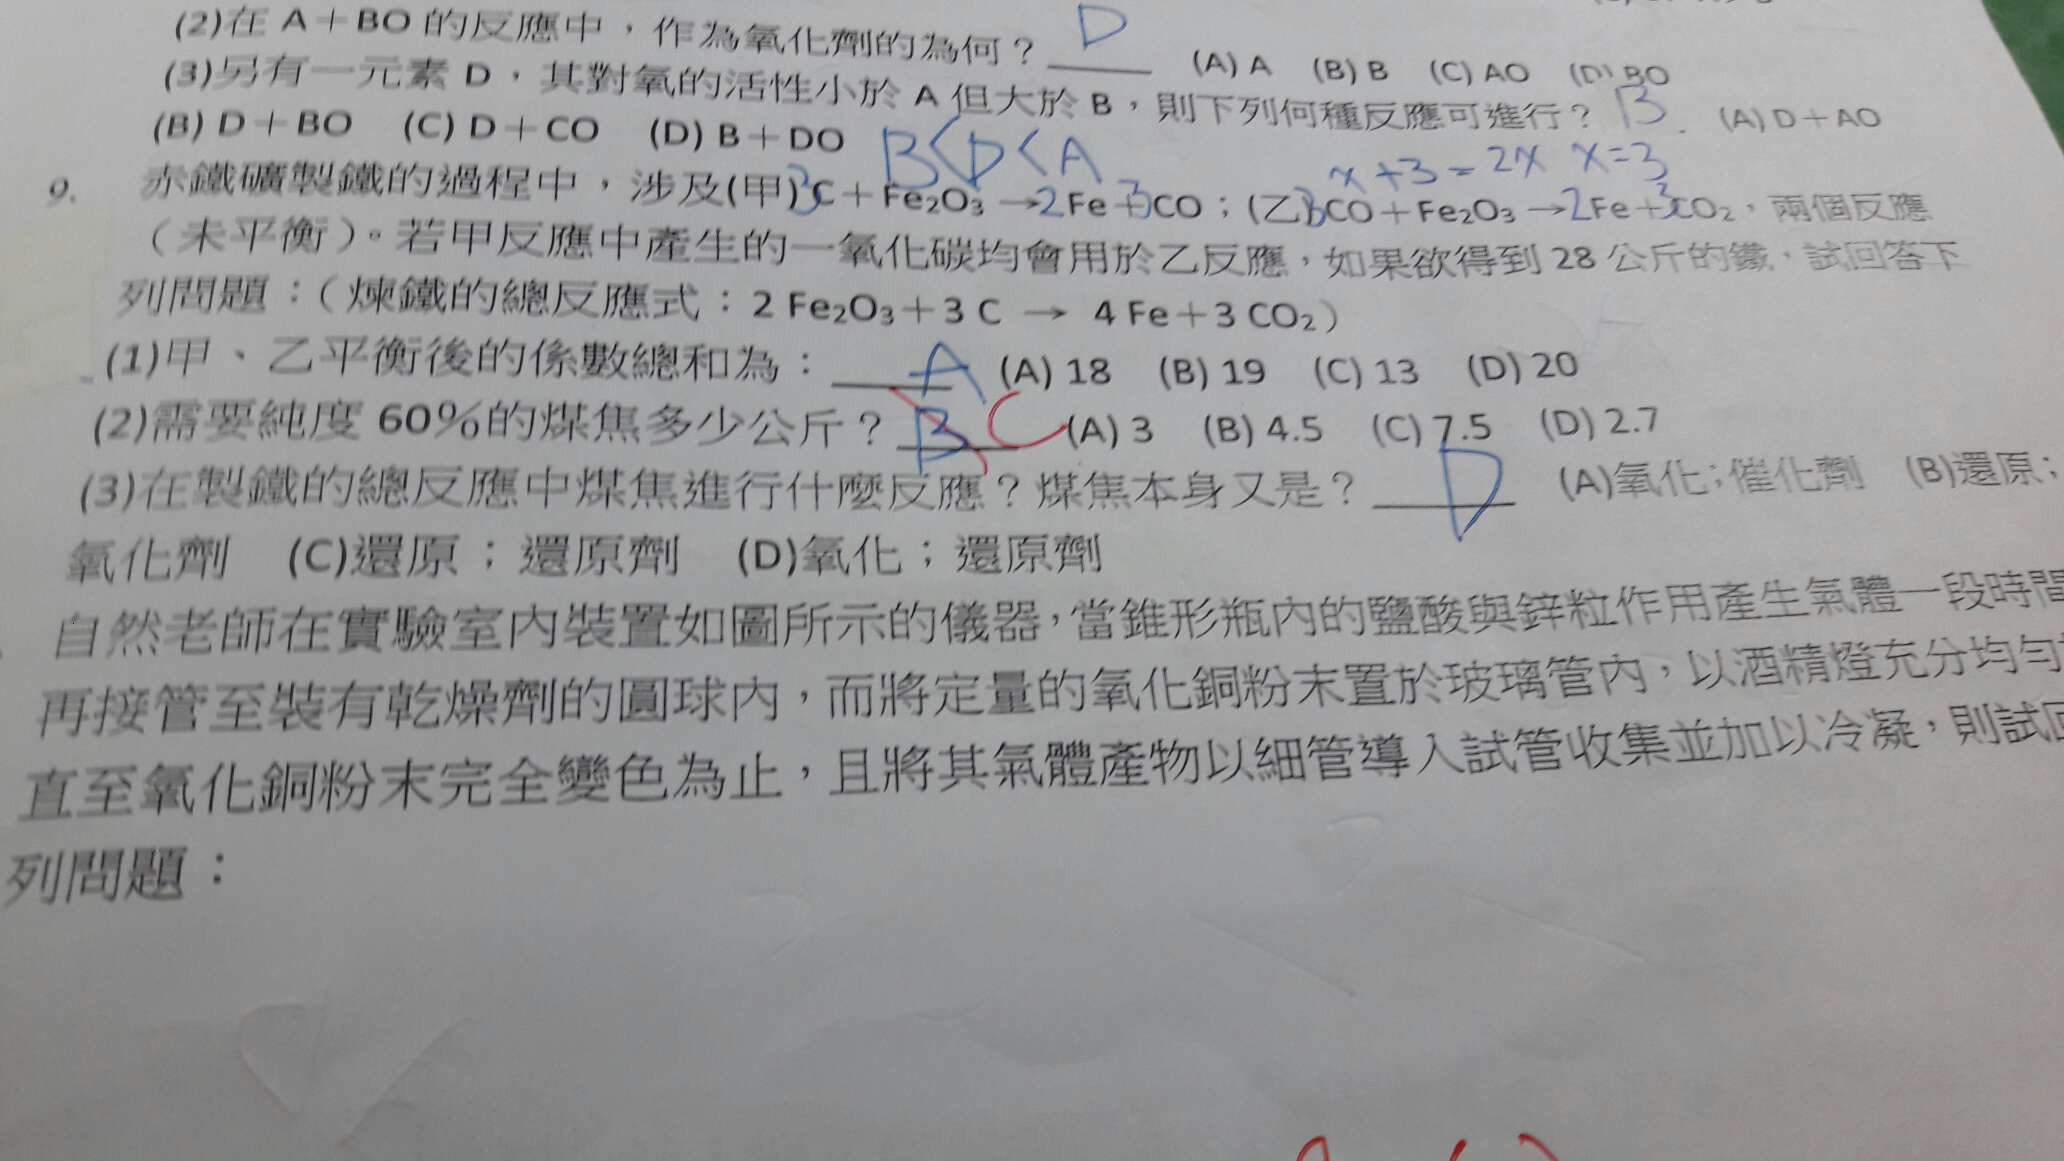 (2)在 A＋BO 的反應中，作為氧化劑的為何？ D (A) A (B) B (C) AO (D) BO
(3)另有一元素 D，其對氧的活性小於 A 但大於 B，則下列何種反應可進行？ B . (A) D＋AO
(B) D＋BO (C) D＋CO (D) B＋DO
B<D<A x+3=2x x=3
9. 赤鐵礦製鐵的過程中，涉及(甲)3C＋Fe2O3→2Fe＋3CO；(乙)3CO＋Fe2O3→2Fe＋3CO2，兩個反應
（未平衡）。若甲反應中產生的一氧化碳均會用於乙反應，如果欲得到 28 公斤的鐵，試回答下
列問題：（煉鐵的總反應式：2 Fe2O3＋3 C → 4 Fe＋3 CO2）
(1)甲、乙平衡後的係數總和為： A (A) 18 (B) 19 (C) 13 (D) 20
(2)需要純度 60%的煤焦多少公斤？ B C (A) 3 (B) 4.5 (C) 7.5 (D) 2.7
(3)在製鐵的總反應中煤焦進行什麼反應？煤焦本身又是？ D (A)氧化；催化劑 (B)還原；
氧化劑 (C)還原；還原劑 (D)氧化；還原劑
自然老師在實驗室內裝置如圖所示的儀器，當錐形瓶內的鹽酸與鋅粒作用產生氣體一段時間
再接管至裝有乾燥劑的圓球內，而將定量的氧化銅粉末置於玻璃管內，以酒精燈充分均勻
直至氧化銅粉末完全變色為止，且將其氣體產物以細管導入試管收集並加以冷凝，則試回
列問題：